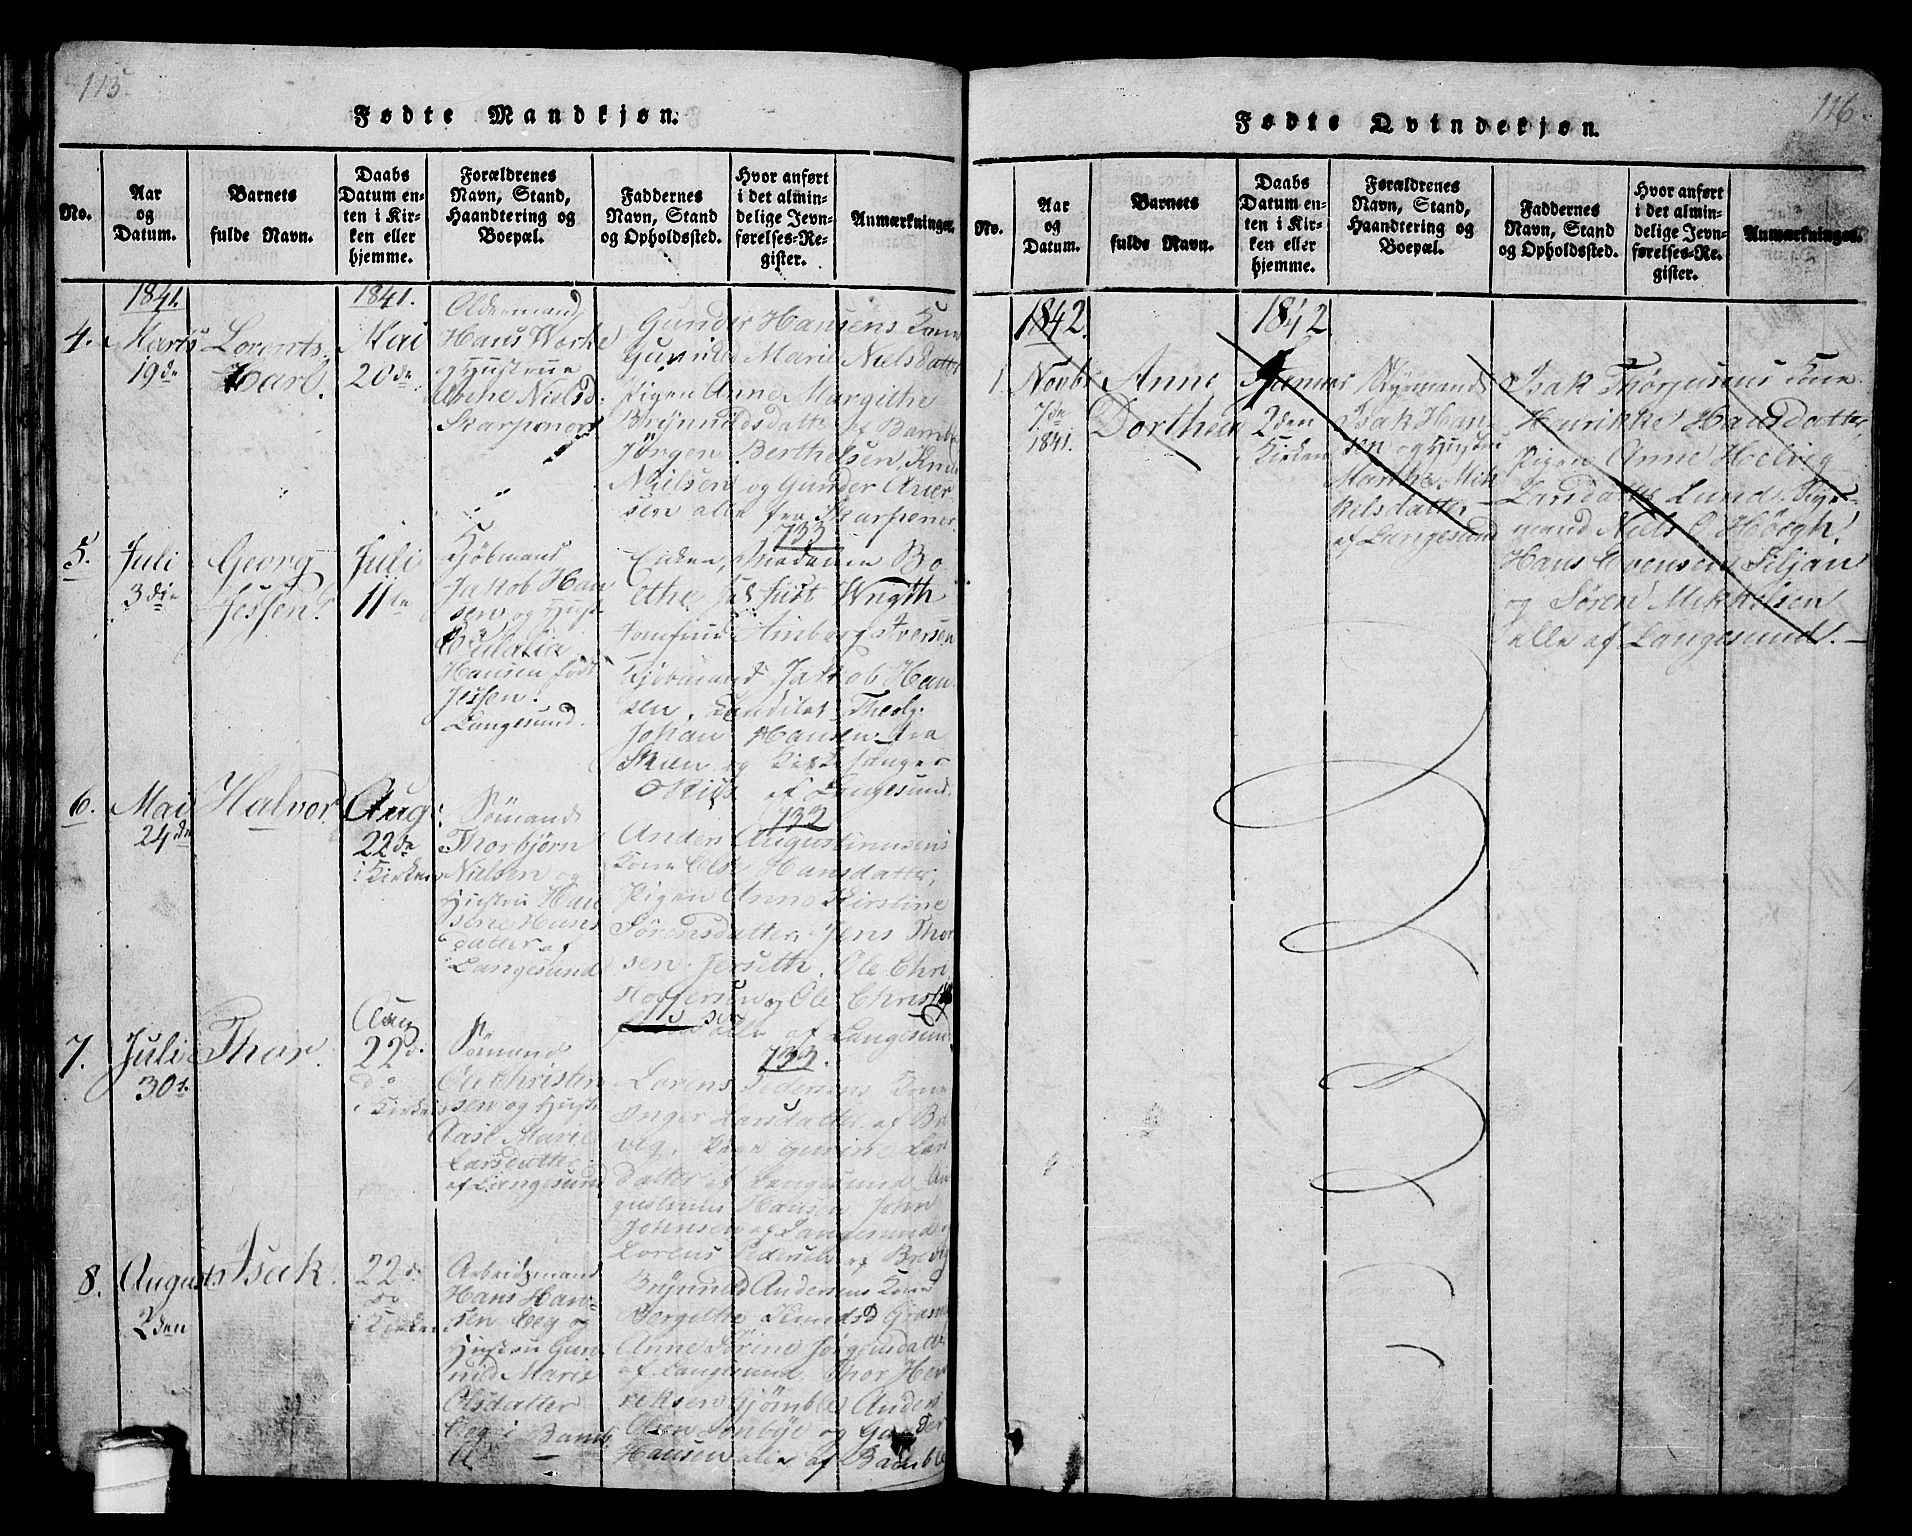 115.
Fødte Mandkjøn.
No.
Aar
og
Datum.
Barnets
fulde Navn.
Daabs
Datum en-
ten i Kir-
ken eller
hjemme.
Forældrenes
Navn, Stand,
Haandtering og
Boepæl.
Faddernes
Navn, Stand
og Opholdssted.
Hvor anført
i det almin-
delige Jevn-
førelses-Re-
gister.
Anmærkninger.
1841.
4. Marts
19de
Lorents
Carl.
1841.
Mai
20de
Oldermand
HansWorke
og Hustrue
Nielsd.
Gunder Hansens Kone
Gunild Marie Nielsdatter
Pigen Anne Margithe
Brynnildsdatter af Bamble
Jörgen Berthelsen, Knud
Nielsen og Gunder Aner
sen alle fra Skarpenor
733
5. Juli
3die
Georg
Jessen.
Juli
11te
Kjöbmand
Jakob Han
sen og Hust
Hansen født
Jessen.
Langesund.
Enken, Madame Bo
ethe Wrigth
Jomfrue Amberg Iversen
Kjöbmand Jakob Han
sen, Kandidat Theolg.
Johan Hansen fra
Skien og Kirkesanger
af Langesund.
132
6. Mai
24de
Halvor
Aug
22de
i Kirken
Sömand
Thorbjørn
Nielsen og
Hustru Han
sine Hans
datter af
Langesund
Anders Augustinusens
Kone Else Hansdatter,
Pigen Anne Kirstine
Sörensdatter, Jens Thor
sen Jerseth, Ole Chri
stoffersen og Ole Christ
sen alle af Langesund
733.
7. Juli
30te
Thor.
Aug
22de
do
i Kirken
Sömand
Ole Christen
sen og Hust
Aase Marie
Larsdatter
af Langesund
Lorens Pedersens Kone
Inger Larsdatter af Bre
vig, Gurine Lars
datter af Langesund Au
gustinus Hansen John
Johnsen af Langesund
Lorens Pedersen af Brevig
8. August
2den
Isak.
22de
do
i Kirken
Arbeidsmand
Hans Han-
sen Eeg og
Hustru Gun
nild Marie
Olsdatter
Eeg i Bamb
le —
Brynild Andersens Kone
Bergithe Knudsd
Anne Sörine Jörgensdatter
af Langesund Thor Hen
riksen Gjömble Anders
Olsen og Gunder
Hansen alle af Bamble
116.
Fødte Qvindekjøn.
No.
Aar
og
Datum.
Barnets
fulde Navn.
Daabs
Datum en-
ten i Kir-
ken eller
hjemme.
Forældrenes
Navn, Stand,
Haandtering og
Boepæl.
Faddernes
Navn, Stand
og Opholdssted.
Hvor anført
i det almin-
delige Jevn-
førelses-Re-
gister.
Anmærkninger.
1842.
1. Novbr
7de
1841.
Anne
Dorthea
1842
2den
i Kirken
Styrmand
Isak Han
sen og Hustru
Marthe Mik
kelsdatter
af Langesund
Isak Thorjusens Kone
Henrikke Hansdatter,
Pigen Anne Helvig
Larsdatter Lund, Styr-
mand Niels C Höegh,
Hans Evensen Siljan
og Sören Mikkelsen
alle af Langesund. —